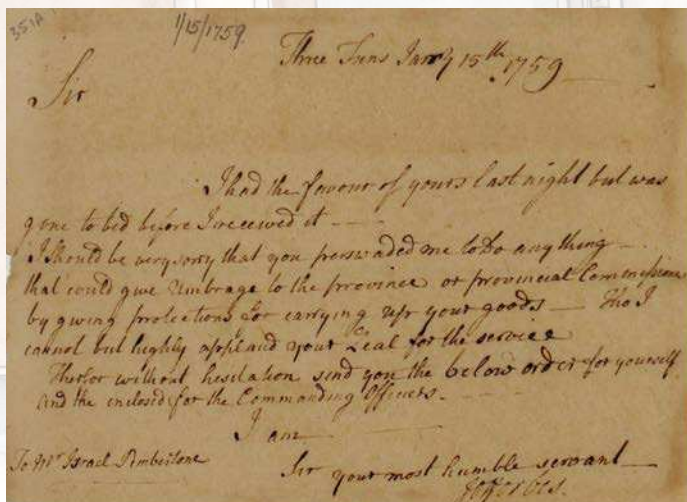 351A
1/15/1759
Three Tuns Janry 15th 1759
Sir
I had the favour of yours last night but was
gone to bed before I received it
I should be very sorry that you perswaded me to Do any thing
that could give Umbrage to the province or provincial Commissions
by giving protections for carrying up your goods Tho I
cannot but highly applaud your Zeal for the service
Therfor without hesitation send you the below order for yourself
and the enclosed for the Commanding Officers.
I am
To Mr Israel Pembertone
Sir your most humble servant
Jo Forbes.